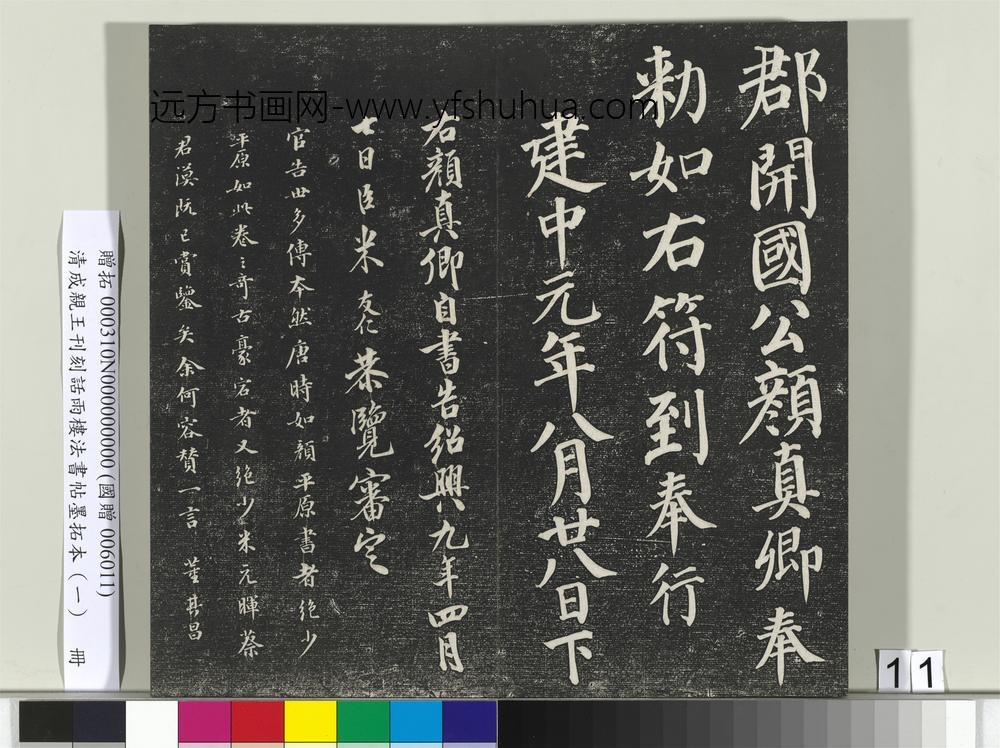 郡開國公顏真卿奉
勑如右符到奉行
建中元年八月廿八日下
右顏真卿自書告紹興九年四月
七日臣米友仁恭覽審定
官告世多傳本然唐時如顏平原書者絕少
平原如此卷之奇古豪宕者又絕少米元暉蔡
君謨既已賞鑒矣余何容贊一言 董其昌
远方书画网-www.yfshuhua.com
贈拓 000310N000000000 (國贈 006011)
清成親王刊刻話雨樓法書帖墨拓本(一) 冊
11